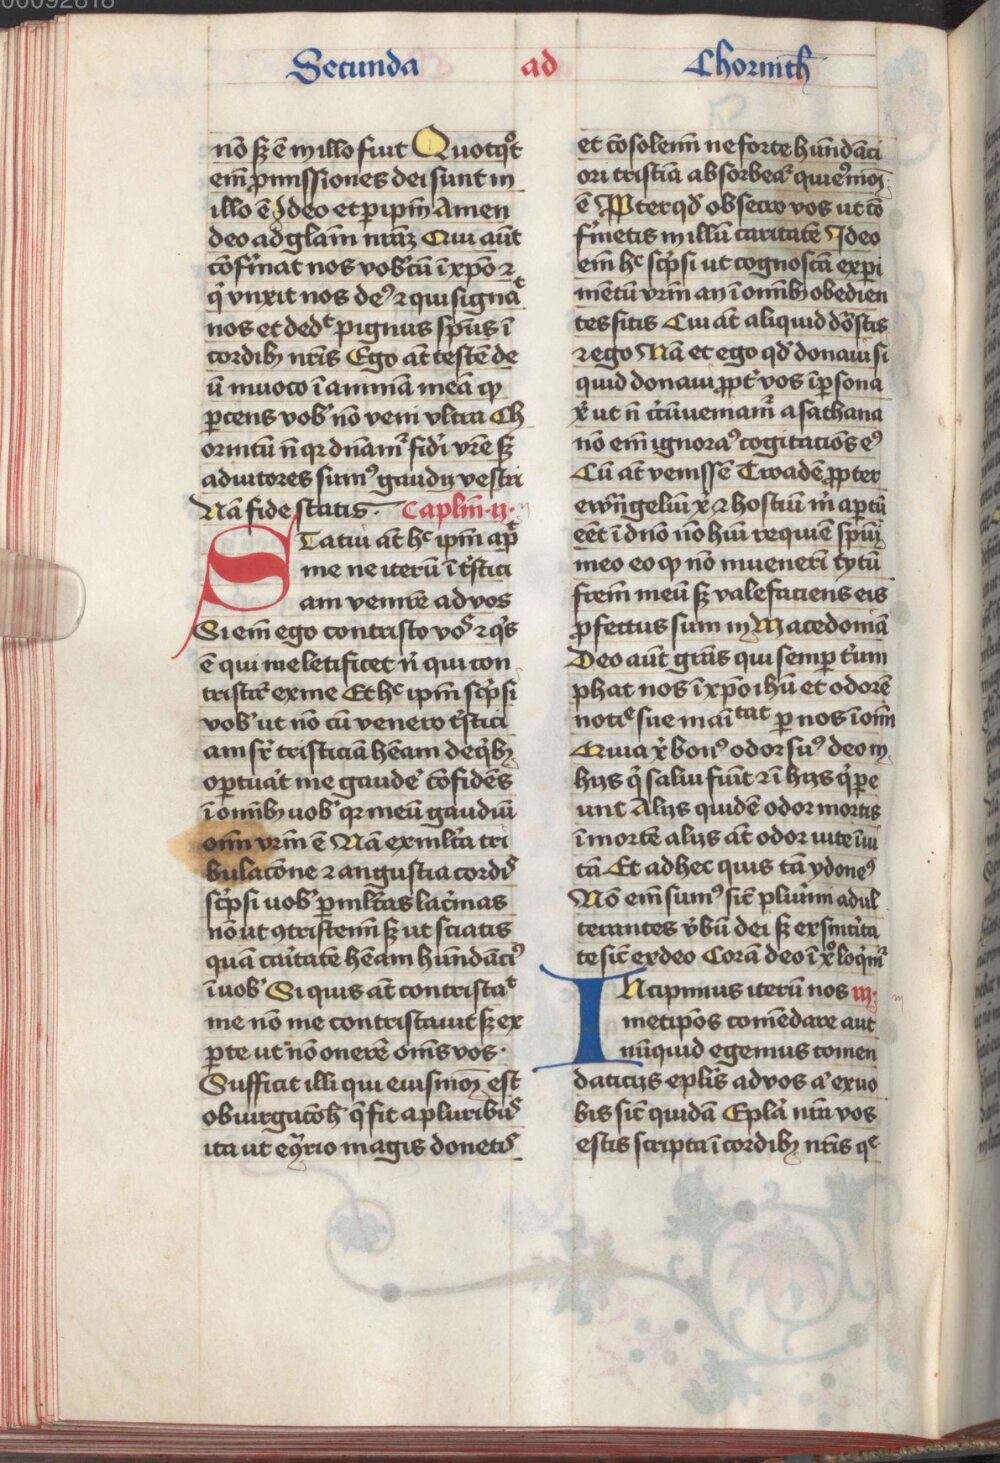 00092818
Secunda ad Chorinth̄
nō sꝫ ē in illo fuit Quotqͦt
em̄ ꝓmissiones dei sunt in
illo ē Ideo et ꝑ ip̄m Amen
deo ad gl̄am nr̄aꝫ Qui aūt
cōfͥmat nos vobcū ī xp̄o ⁊
qͥ vnxit nos deꝰ ⁊ qui signaͭ
nos et dedͭ pignus sp̄us ī
cordibꝫ nr̄is Ego at̄ testē de
ū inuoco ī animā meā ꝙ
ꝑcens vob nō veni vltra Ch
orintū n̄ qr dn̄amͬ fidi vr̄e sꝫ
adiutores sumꝰ gaudij vestri
Nā fide statis. Caplm̄ .ij.
Statui at̄ hͨ ip̄m ap̄
me ne iterū ī tͥstici
am venirē ad vos
Si em̄ ego contristo vos ⁊ qͥs
ē qui me letificet nͥ qui con
tristatͬ ex me Et hͨ ip̄m scͥpsi
vob ut nō cū venero tͥstici
am sͬ tristiciā hēam de qͥbꝫ
oportuāt me gaude cōfidēs
ī om̄ibꝫ uob qr meū gaudiū
om̄ vr̄m ē Nā ex ml̄ta tri
bulacōne ⁊ angustia cordis
scͥpsi uob ꝑ ml̄tas lacͥmas
nō ut ꝯtristem̄ sꝫ ut sciatis
quā caͥtatē hēam hūndāciꝰ
ī uob Si quis at̄ contristaͭ
me nō me contristauit sꝫ ex
ꝑte ut nō onerē om̄s vos.
Sufficit illi qui eiusmoꝫ est
obiurgacōh̄ q̄ fit a pluribus
ita ut eͣ̄rio magis donetis
et cōsolem̄ ne forte hūndāci
ori tristiā absorbeatͬ qui eͥmoꝫ
ē Ꝓpter qd̄ obsecro vos ut cō
fͥmetis in illū caritatē Ideo
em̄ hͨ scͥpsi ut cognoscā experi
mētū vr̄m an ī om̄ibꝫ obedien
tes sitis Cui at̄ aliquid dōstis
⁊ ego Nā et ego qd̄ donaui si
quid donaui ꝓpt vos ī ꝑsona
xͥ ut n̄ cͥcūueniamͬ a sathana
nō em̄ ignoraꝰ cogitaciōs eꝰ
Cū at̄ venissē Troadē ꝓpter
ewͣngeliū xͥ ⁊ hostiū mͥ aꝑtū
eēt ī dn̄o nō hūi requiē sp̄uī
meo eo ꝙ nō inuenerī tytū
frēm meū sꝫ valefaciens eis
ꝓfectus sum in Macedoniā
Deo aūt grās qui semꝑ tͥum
phat nos ī xp̄o ih̄u et odorē
noticͤ sue maīfestat ꝑ nos ī om̄
Quia xͥ bonꝰ odor sumꝰ deo in
hijs qͥ salui fiūt ⁊ ī hijs qͥ ꝑe
unt Alijs quidē odor mortis
ī mortē alijs at̄ odor uite ī ui
tā Et ad hec quis tā ydoneꝰ
Nō em̄ sumꝰ sic̄ plurīmi adul
terantes vͤbū dei sꝫ ex sincͥita
te sic̄ ex deo Corā deo ī xͦ loqͥmͬ
Incipimus iterū nos iij.
metipōs comēdare aut
nūquid egemus comen
daticijs eplīs ad vos aͭ ex uo
bis sic̄ quidā Epl̄a nr̄a vos
estis scripta ī cordibꝫ nr̄is qͤ